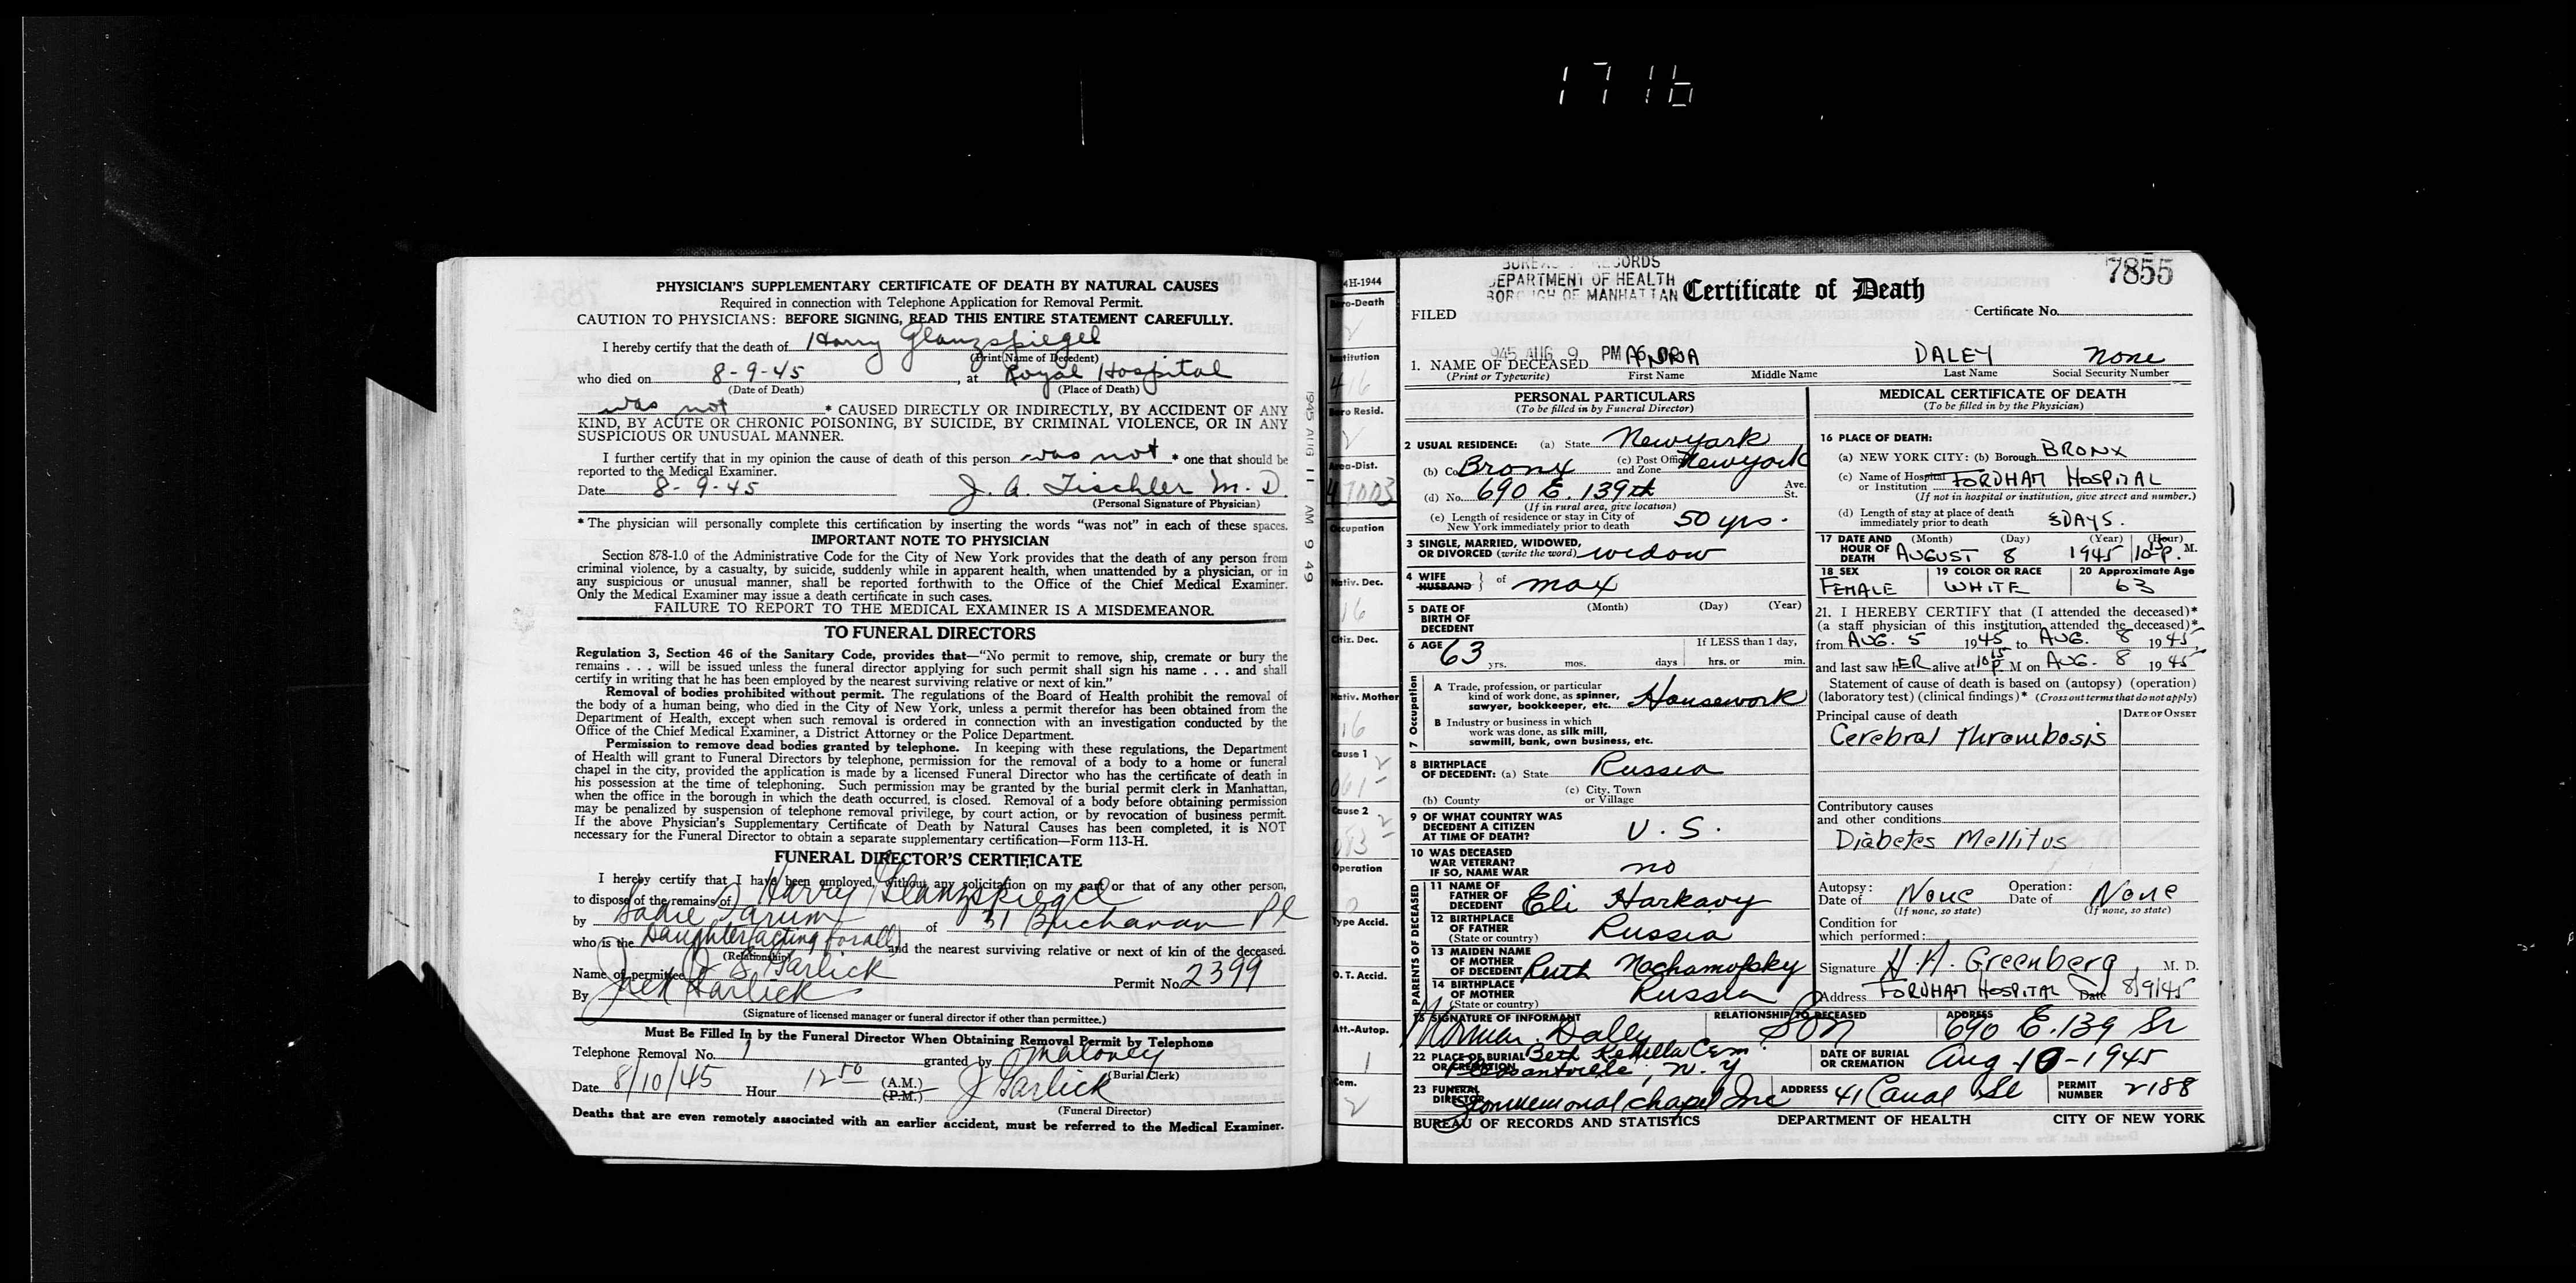 1716
PHYSICIAN'S SUPPLEMENTARY CERTIFICATE OF DEATH BY NATURAL CAUSES
Required in connection with Telephone Application for Removal Permit.
CAUTION TO PHYSICIANS: BEFORE SIGNING, READ THIS ENTIRE STATEMENT CAREFULLY.
I hereby certify that the death of Harry Glanzspiegel
(Print Name of Decedent)
who died on 8-9-45, at Royal Hospital
(Date of Death) (Place of Death)
was not * CAUSED DIRECTLY OR INDIRECTLY, BY ACCIDENT OF ANY
KIND, BY ACUTE OR CHRONIC POISONING, BY SUICIDE, BY CRIMINAL VIOLENCE, OR IN ANY
SUSPICIOUS OR UNUSUAL MANNER.
I further certify that in my opinion the cause of death of this person was not * one that should be
reported to the Medical Examiner.
Date 8-9-45 J. A. Tischler M.D.
(Personal Signature of Physician)
* The physician will personally complete this certification by inserting the words "was not" in each of these spaces.
IMPORTANT NOTE TO PHYSICIAN
Section 878-1.0 of the Administrative Code for the City of New York provides that the death of any person from
criminal violence, by a casualty, by suicide, suddenly while in apparent health, when unattended by a physician, or in
any suspicious or unusual manner, shall be reported forthwith to the Office of the Chief Medical Examiner.
Only the Medical Examiner may issue a death certificate in such cases.
FAILURE TO REPORT TO THE MEDICAL EXAMINER IS A MISDEMEANOR.
TO FUNERAL DIRECTORS
Regulation 3, Section 46 of the Sanitary Code, provides that—"No permit to remove, ship, cremate or bury the
remains . . . will be issued unless the funeral director applying for such permit shall sign his name . . . and shall
certify in writing that he has been employed by the nearest surviving relative or next of kin."
Removal of bodies prohibited without permit. The regulations of the Board of Health prohibit the removal of
the body of a human being, who died in the City of New York, unless a permit therefor has been obtained from the
Department of Health, except when such removal is ordered in connection with an investigation conducted by the
Office of the Chief Medical Examiner, a District Attorney or the Police Department.
Permission to remove dead bodies granted by telephone. In keeping with these regulations, the Department
of Health will grant to Funeral Directors by telephone, permission for the removal of a body to a home or funeral
chapel in the city, provided the application is made by a licensed Funeral Director who has the certificate of death in
his possession at the time of telephoning. Such permission may be granted by the burial permit clerk in Manhattan,
when the office in the borough in which the death occurred, is closed. Removal of a body before obtaining permission
may be penalized by suspension of telephone removal privilege, by court action, or by revocation of business permit.
If the above Physician's Supplementary Certificate of Death by Natural Causes has been completed, it is NOT
necessary for the Funeral Director to obtain a separate supplementary certification—Form 113-H.
FUNERAL DIRECTOR'S CERTIFICATE
I hereby certify that I have been employed, without any solicitation on my part or that of any other person,
to dispose of the remains of Harry Glanzspiegel
by Sadie Parum of 51 Buchanan Pl
who is the Daughter (acting for all) and the nearest surviving relative or next of kin of the deceased.
(Relationship)
Name of permittee J S Garlick Permit No. 2399
By Jack Garlick
(Signature of licensed manager or funeral director if other than permittee.)
Must Be Filled In by the Funeral Director When Obtaining Removal Permit by Telephone
Telephone Removal No. 1 granted by Maloney
(Burial Clerk)
Date 8/10/45 Hour 12 50 (A.M.) (P.M.) J Garlick
(Funeral Director)
Deaths that are even remotely associated with an earlier accident, must be referred to the Medical Examiner.
1945 AUG 11 AM 9 49
MH-1944
Boro-Death
2
Institution
416
Boro Resid.
2
Area-Dist.
47003
Occupation
Nativ. Dec.
16
Citiz. Dec.
Nativ. Mother
16
Cause 1
2
061
Cause 2
2
083
Operation
0
Type Accid.
O. T. Accid.
Att.-Autop.
1
Cem.
2
BUREAU OF RECORDS
DEPARTMENT OF HEALTH
BOROUGH OF MANHATTAN
Certificate of Death
7855
FILED
Certificate No.
945 AUG 9 PM 6 02
1. NAME OF DECEASED ANNA DALEY none
(Print or Typewrite) First Name Middle Name Last Name Social Security Number
PERSONAL PARTICULARS
(To be filled in by Funeral Director)
2 USUAL RESIDENCE: (a) State New York
(b) Co. Bronx (c) Post Office and Zone New York
(d) No. 690 E. 139th Ave. St.
(If in rural area, give location)
(e) Length of residence or stay in City of
New York immediately prior to death 50 yrs.
3 SINGLE, MARRIED, WIDOWED,
OR DIVORCED (write the word) widow
4 WIFE HUSBAND } of max
5 DATE OF BIRTH OF DECEDENT (Month) (Day) (Year)
6 AGE 63 yrs. mos. days If LESS than 1 day, hrs. or min.
7 Occupation
A Trade, profession, or particular
kind of work done, as spinner,
sawyer, bookkeeper, etc. Housework
B Industry or business in which
work was done, as silk mill,
sawmill, bank, own business, etc.
8 BIRTHPLACE
OF DECEDENT: (a) State Russia
(b) County (c) City, Town or Village
9 OF WHAT COUNTRY WAS
DECEDENT A CITIZEN
AT TIME OF DEATH? U. S.
10 WAS DECEASED
WAR VETERAN?
IF SO, NAME WAR no
PARENTS OF DECEASED
11 NAME OF
FATHER OF
DECEDENT Eli Harkavy
12 BIRTHPLACE
OF FATHER
(State or country) Russia
13 MAIDEN NAME
OF MOTHER
OF DECEDENT Ruth Nachamofsky
14 BIRTHPLACE
OF MOTHER
(State or country) Russia
MEDICAL CERTIFICATE OF DEATH
(To be filled in by the Physician)
16 PLACE OF DEATH:
(a) NEW YORK CITY: (b) Borough BRONX
(c) Name of Hospital
or Institution FORDHAM HOSPITAL
(If not in hospital or institution, give street and number.)
(d) Length of stay at place of death
immediately prior to death 3 DAYS.
17 DATE AND HOUR OF DEATH (Month) (Day) (Year) (Hour)
AUGUST 8 1945 10 15 P. M.
18 SEX 19 COLOR OR RACE 20 Approximate Age
FEMALE WHITE 63
21. I HEREBY CERTIFY that (I attended the deceased)*
(a staff physician of this institution attended the deceased)*
from AUG. 5 1945 to AUG. 8 1945,
and last saw hER alive at 10 15 P. M on AUG. 8 1945
Statement of cause of death is based on (autopsy) (operation)
(laboratory test) (clinical findings)* (Cross out terms that do not apply)
Principal cause of death DATE OF ONSET
Cerebral Thrombosis
Contributory causes
and other conditions
Diabetes Mellitus
Autopsy: Date of None Operation: Date of None
(If none, so state) (If none, so state)
Condition for
which performed:
Signature H. A. Greenberg, M. D.
Address FORDHAM HOSPITAL Date 8/9/45
15 SIGNATURE OF INFORMANT RELATIONSHIP TO DECEASED ADDRESS
Norman Daley Son 690 E. 139 St
22 PLACE OF BURIAL OR CREMATION Beth Cem. Pleasantville, N. Y DATE OF BURIAL OR CREMATION Aug 10-1945
23 FUNERAL DIRECTOR Memorial Chapel Inc ADDRESS 41 Canal St PERMIT NUMBER 2188
BUREAU OF RECORDS AND STATISTICS DEPARTMENT OF HEALTH CITY OF NEW YORK